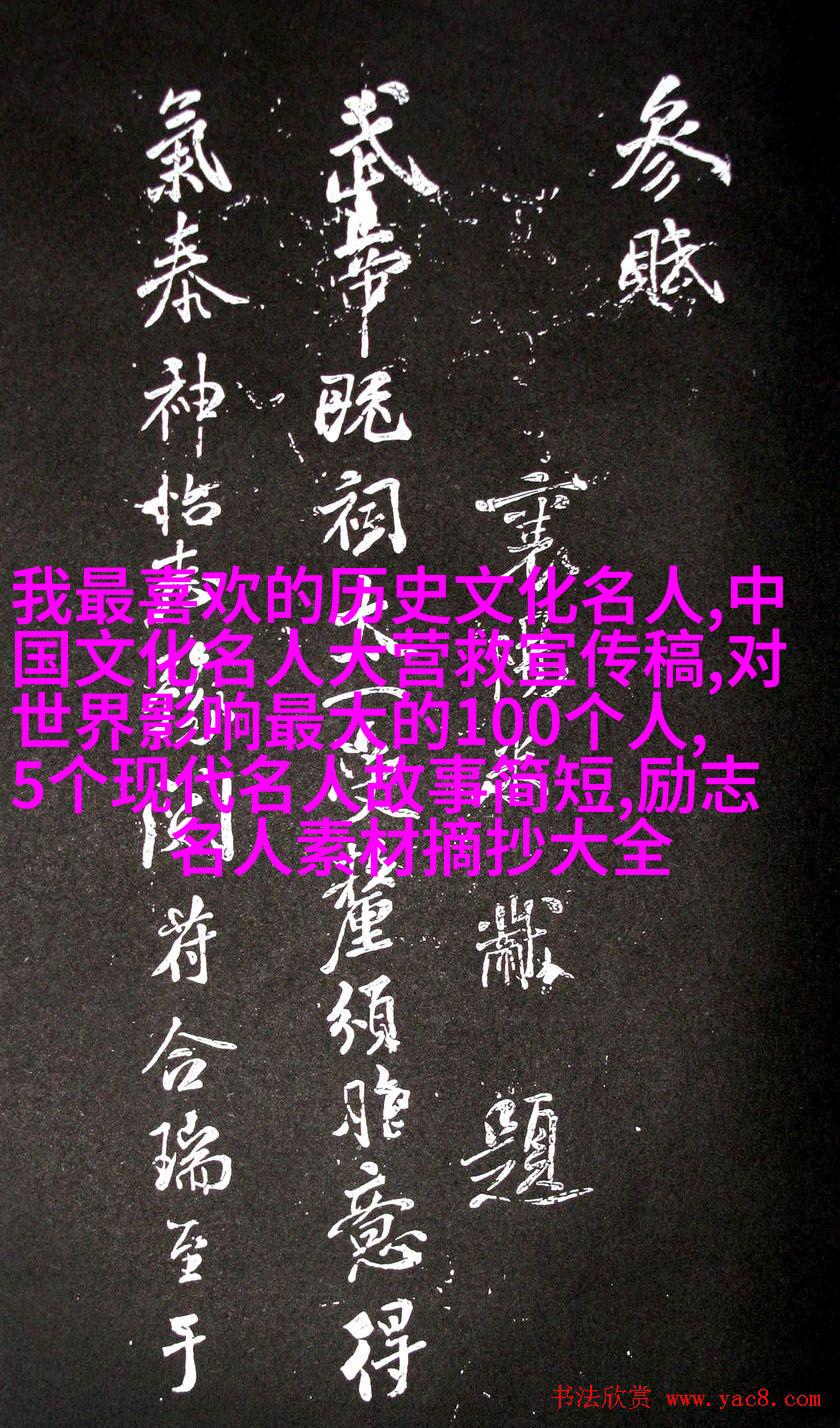 參賦
襄陽米黻題
武帝既祠太一受釐頒胙意得
氣泰神怡志豫閱符合瑞至于
我最喜欢的历史文化名人,中
国文化名人大营救宣传稿,对
世界影响最大的100个人,
5个现代名人故事简短,励志
名人素材摘抄大全
书法欣赏 www.yac8.com